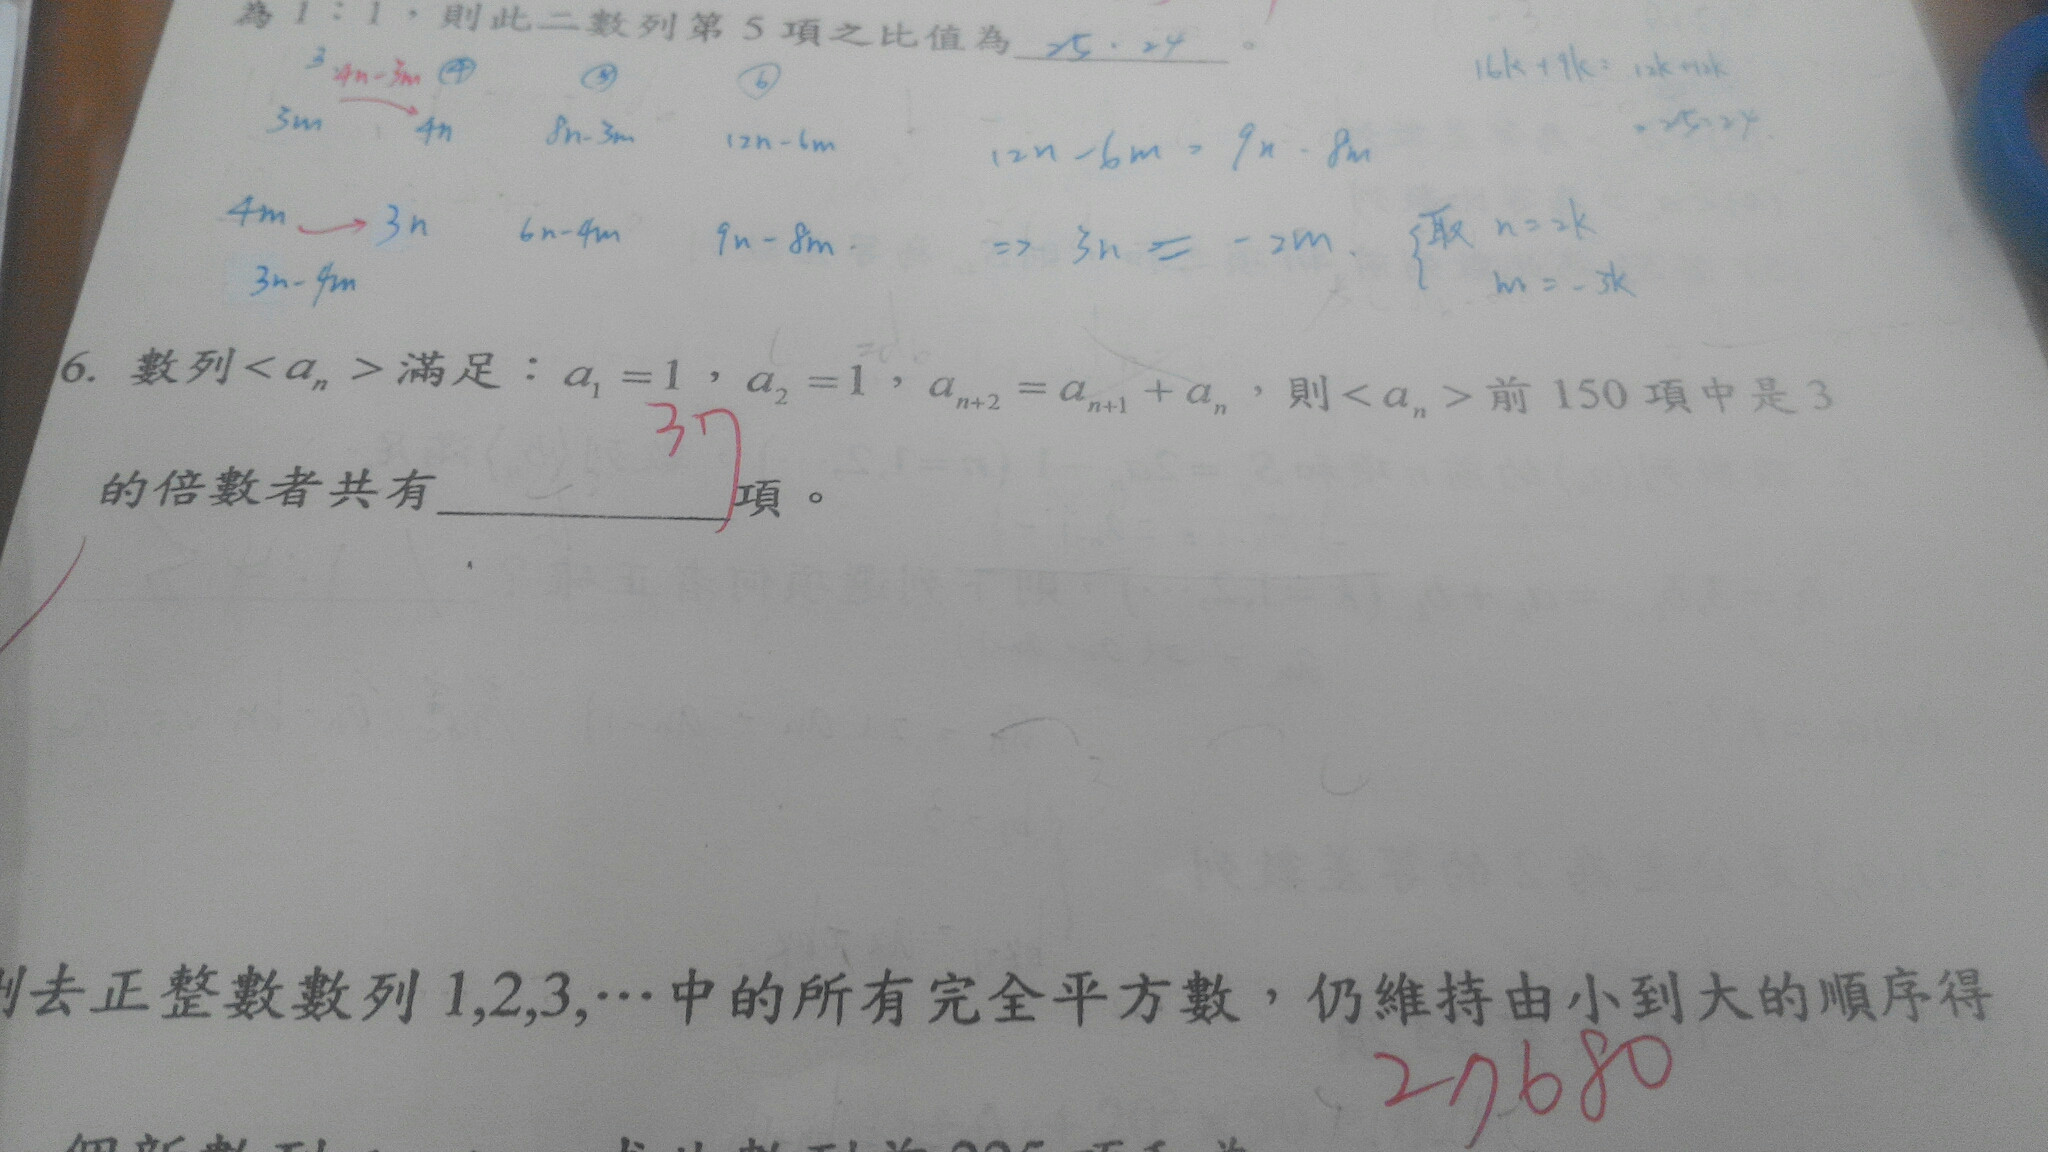 為 1：1，則此二數列第 5 項之比值為 25:24 。
3 4n-3m ④ ⑤ ⑥ 16k+9k: 12k+12k
3m 4n 8n-3m 12n-6m 12n-6m = 9n-8m = 25:24
4m → 3n 6n-4m 9n-8m => 3n = -2m. { 取 n=2k
3n-4m m=-3k
6. 數列<aₙ>滿足：a₁=1，a₂=1，aₙ₊₂=aₙ₊₁+aₙ，則<aₙ>前 150 項中是 3
37
的倍數者共有 項。
去正整數數列 1,2,3,…中的所有完全平方數，仍維持由小到大的順序得
27680